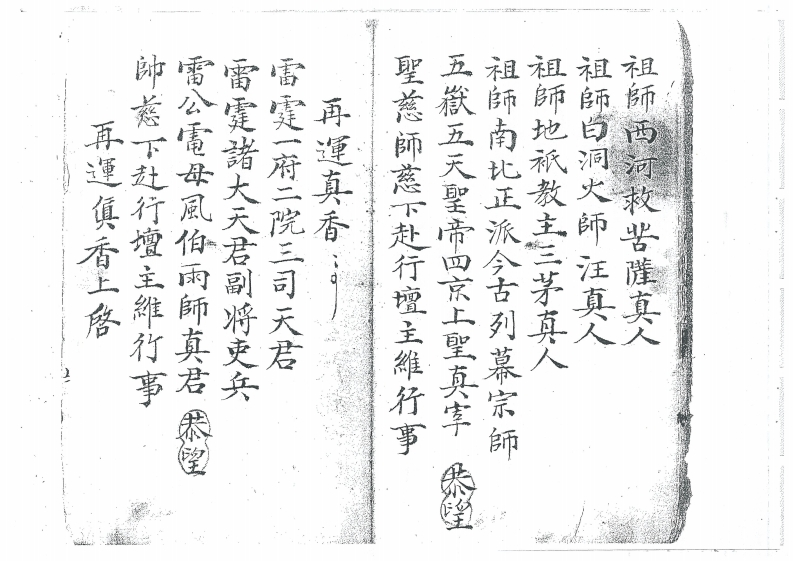 祖師西河救苦薩真人
祖師白洞火師汪真人
祖師地祇教主三茅真人
祖師南北正派今古列幕宗師
五嶽五天聖帝四京上聖真宰 恭望
聖慈師慈下赴行壇主維行事
再運真香
雷霆一府二院三司天君
雷霆諸大天君副将吏兵
雷公電母風伯雨師真君 恭望
帥慈下赴行壇主維行事
再運真香上啓